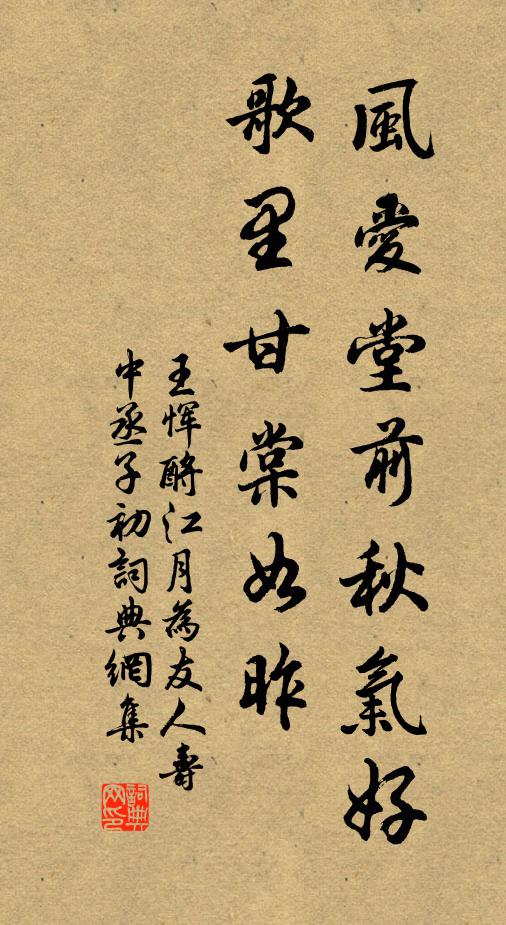 風愛堂前秋氣好
歌里甘棠如昨
王惲酹江月為友人壽
中丞子初詞典網集
詞典網印